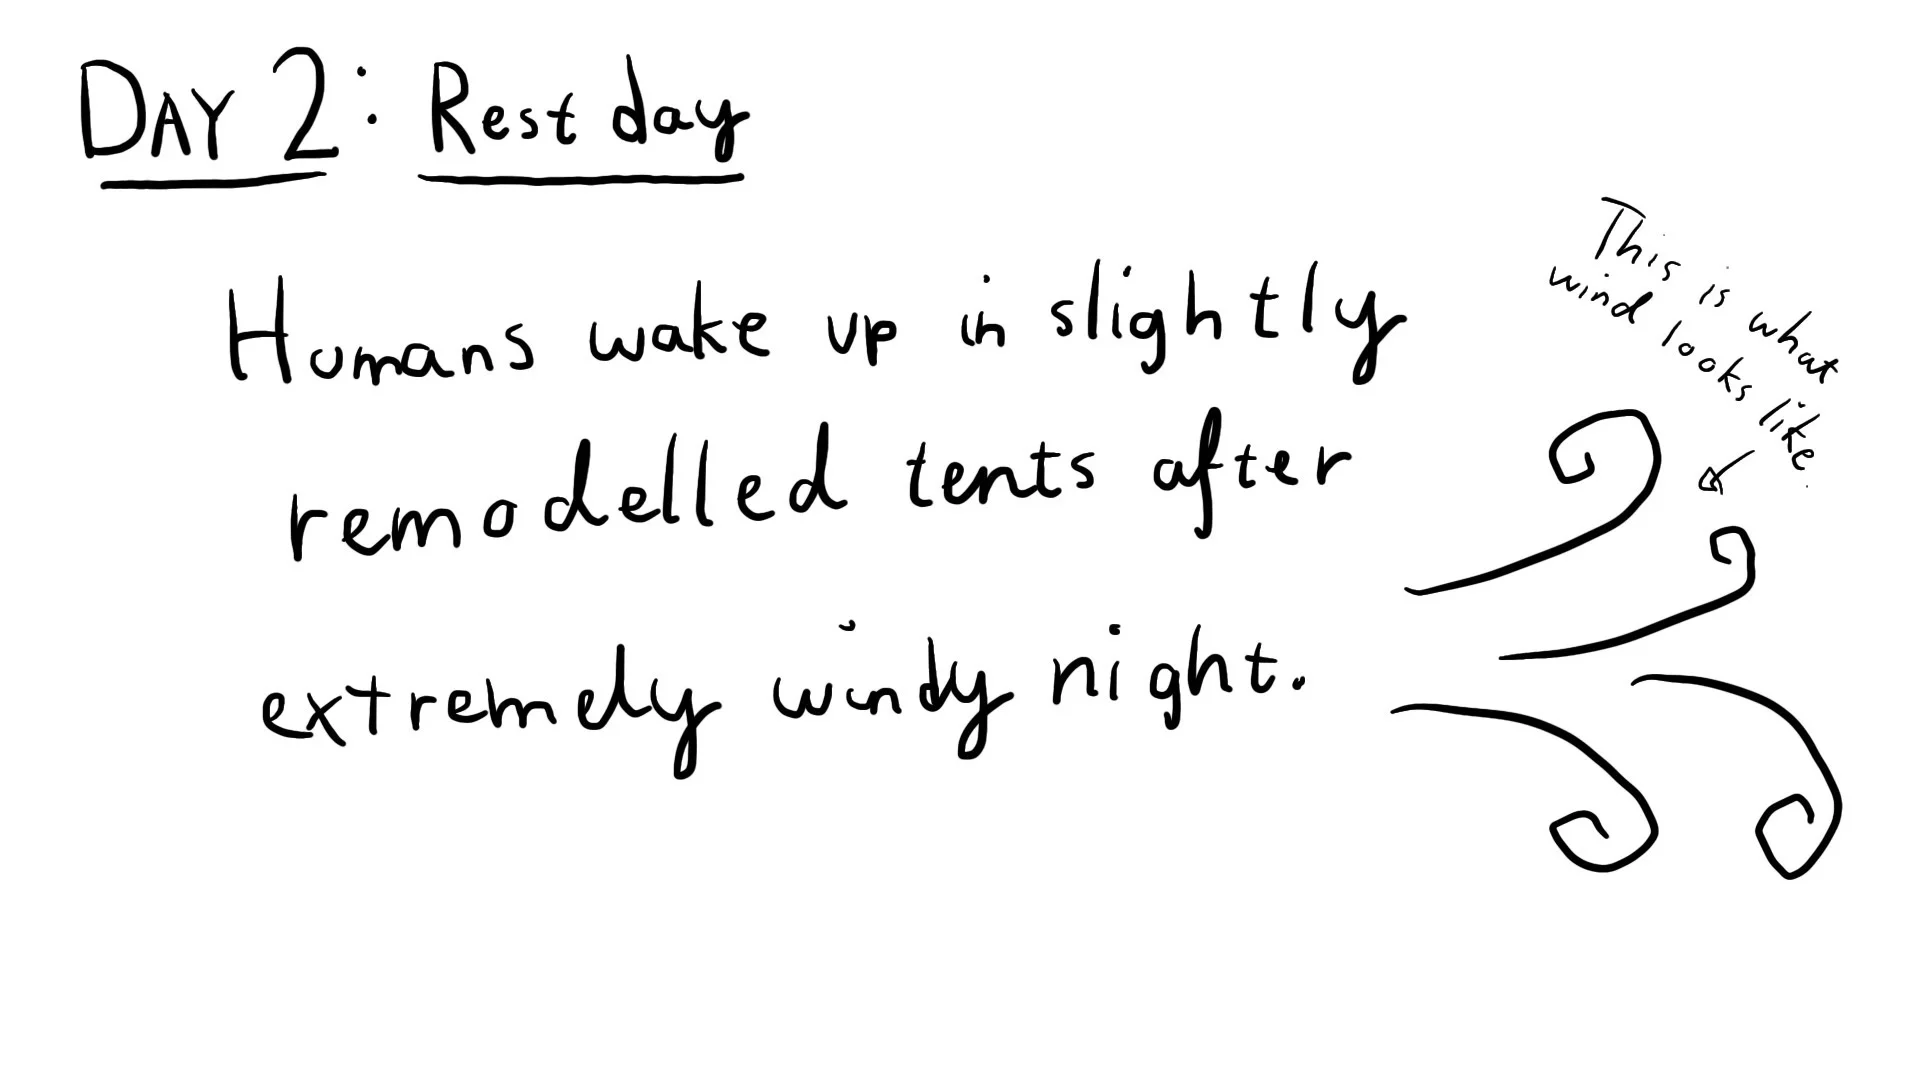 DAY 2: Rest day
Humans wake up in slightly
remodelled tents after
extremely windy night.
This is what
wind looks like